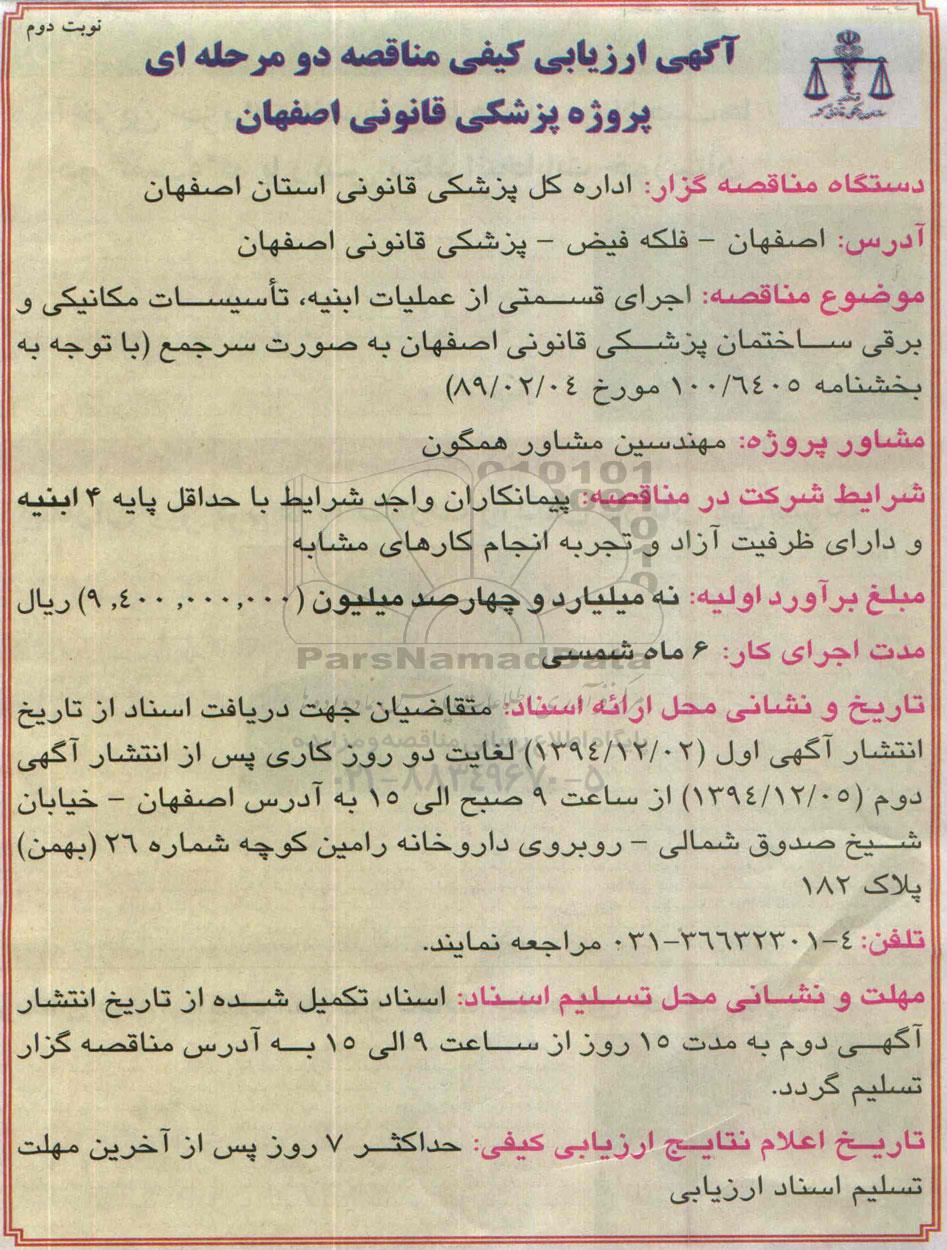 نوبت دوم
آگهی ارزیابی کیفی مناقصه دو مرحله ای
پروژه پزشکی قانونی اصفهان
دستگاه مناقصه گزار: اداره کل پزشکی قانونی استان اصفهان
آدرس: اصفهان – فلکه فیض – پزشکی قانونی اصفهان
موضوع مناقصه: اجرای قسمتی از عملیات ابنیه، تأسیسات مکانیکی و
برقی ساختمان پزشکی قانونی اصفهان به صورت سرجمع (با توجه به
بخشنامه ۱۰۰/٦٤۰٥ مورخ ۸۹/۰۲/۰٤)
مشاور پروژه: مهندسین مشاور همگون
شرایط شرکت در مناقصه: پیمانکاران واجد شرایط با حداقل پایه ۴ ابنیه
و دارای ظرفیت آزاد و تجربه انجام کارهای مشابه
مبلغ برآورد اولیه: نه میلیارد و چهارصد میلیون (۹,٤۰۰,۰۰۰,۰۰۰) ریال
مدت اجرای کار: ۶ ماه شمسی
ParsNamadData
تاریخ و نشانی محل ارائه اسناد: متقاضیان جهت دریافت اسناد از تاریخ
انتشار آگهی اول (۱۳۹٤/۱۲/۰۲) لغایت دو روز کاری پس از انتشار آگهی
۰۲۱-۸۸۳۴۹۶۷۰-۵
دوم (۱۳۹٤/۱۲/۰٥) از ساعت ۹ صبح الی ۱٥ به آدرس اصفهان – خیابان
شیخ صدوق شمالی – روبروی داروخانه رامین کوچه شماره ۲٦ (بهمن)
پلاک ۱۸۲
تلفن: ٤-۳٦٦۳۲۳۰۱-۰۳۱ مراجعه نمایند.
مهلت و نشانی محل تسلیم اسناد: اسناد تکمیل شده از تاریخ انتشار
آگهی دوم به مدت ۱٥ روز از ساعت ۹ الی ۱٥ به آدرس مناقصه گزار
تسلیم گردد.
تاریخ اعلام نتایج ارزیابی کیفی: حداکثر ۷ روز پس از آخرین مهلت
تسلیم اسناد ارزیابی